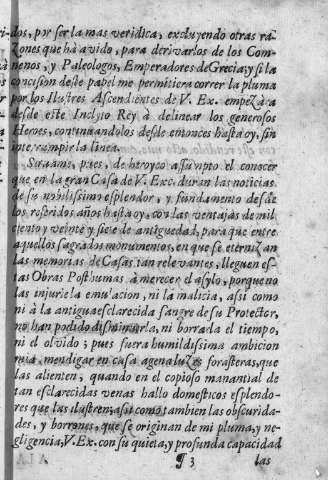 dos, por ser la mas veridica, excluyendo otras ra-
zones que hà avido, para derivarlos de los Com-
nenos, y Paleologos, Emperadores de Grecia, y si la
concision deste papel me permitiera correr la pluma
por los Ilustres Ascendientes de V. Ex. empezàra
desde este Inclyto Rey à delinear los generosos
Heroes, continuandolos desde entonces hasta oy, sin
interrumpir la linea.
Sirvame, pues, de heroyco assumpto el conocer
que en la gran Casa de V. Exc. duran las noticias
de su nobilissimo esplendor, y fundamento desde
los referidos años hasta oy, con las ventajas de mil
ciento y veinte y siete de antiguedad, para que entre
aquellos sagrados monumentos, en que se eternizan
las memorias de Casas tan relevantes, lleguen es-
tas Obras Posthumas à merecer el asylo, porque no
las injurie la emulacion, ni la malicia, assi como
ni à la antigua esclarecida sangre de su Protector,
no han podido disminuirla, ni borrarla el tiempo,
ni el olvido; pues fuera humildissima ambicion
mia, mendigar en casa agena luzes forasteras, que
las alienten, quando en el copioso manantial de
tan esclarecidas venas hallo domesticos esplendo-
res que las ilustren, assi como tambien las obscurida-
des, y borrones, que se originan de mi pluma, y ne-
gligencia, V. Ex. con su quieta, y profunda capacidad
¶ 3 las